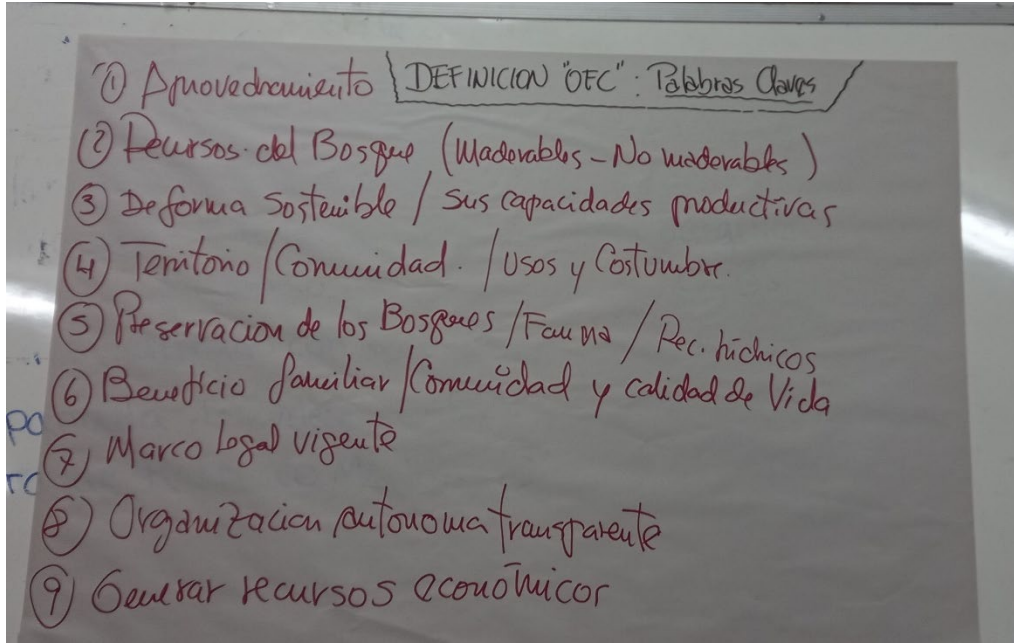 DEFINICION "OFC": Palabras Claves
① Aprovechamiento
② Recursos del Bosque (Maderables - No maderables)
③ De forma Sostenible / Sus capacidades productivas
④ Territorio / Comunidad. / Usos y Costumbre.
⑤ Preservacion de los Bosques / Fauna / Rec. hidricos
⑥ Beneficio familiar / Comunidad y calidad de Vida
⑦ Marco legal vigente
⑧ Organizacion autonoma transparente
⑨ Generar recursos económicos
PO
TO